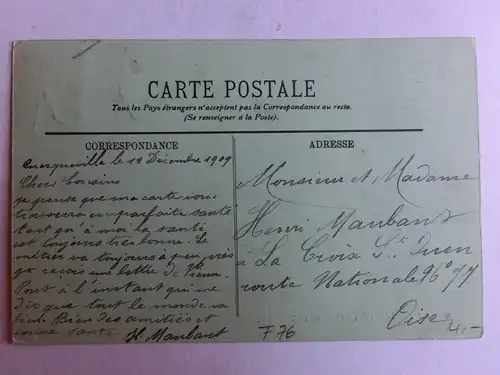 CARTE POSTALE
Tous les Pays étrangers n'acceptent pas la Correspondance au recto.
(Se renseigner à la Poste.)
CORRESPONDANCE
Querqueville le 12 Décembre 1909
Chers Cousins
je pense que ma carte vous
trouvera en parfaite santé
tant qu'à moi la santé
est toujours très bonne. Le
métier va toujours à peu près
je reçois une lettre de
Pont à l'instant qui me
dit que tout le monde va
bien. Bien des amitiés et
bonne santé. H. Maubant
ADRESSE
Monsieur et Madame
Henri Maubant
à La Croix St Ouen
route Nationale 96 77
Oise
F 76
4.-